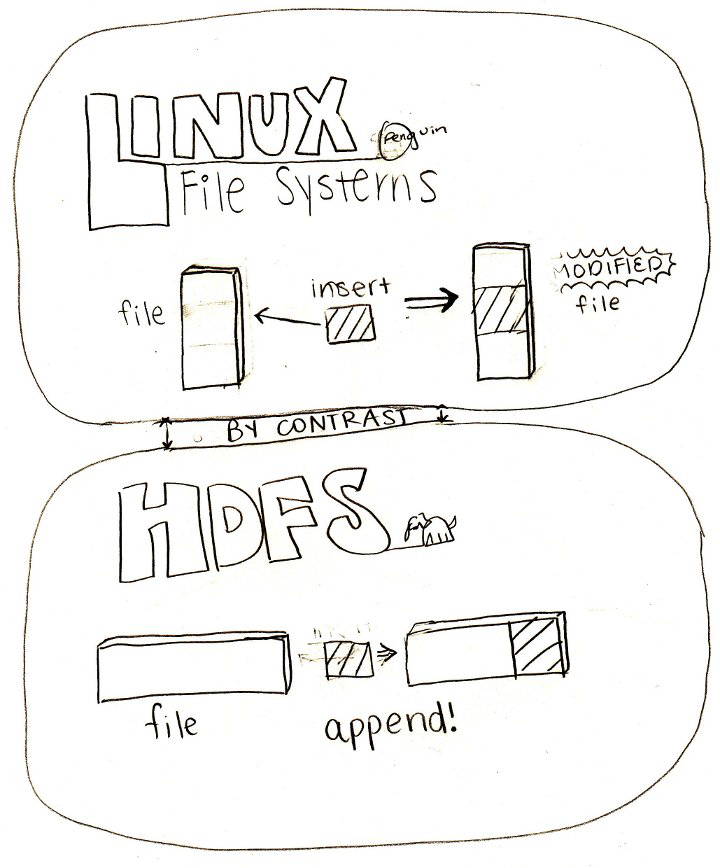 LINUX
Penguin
File Systems
file
insert
MODIFIED
file
BY CONTRAST
HDFS
file
append!